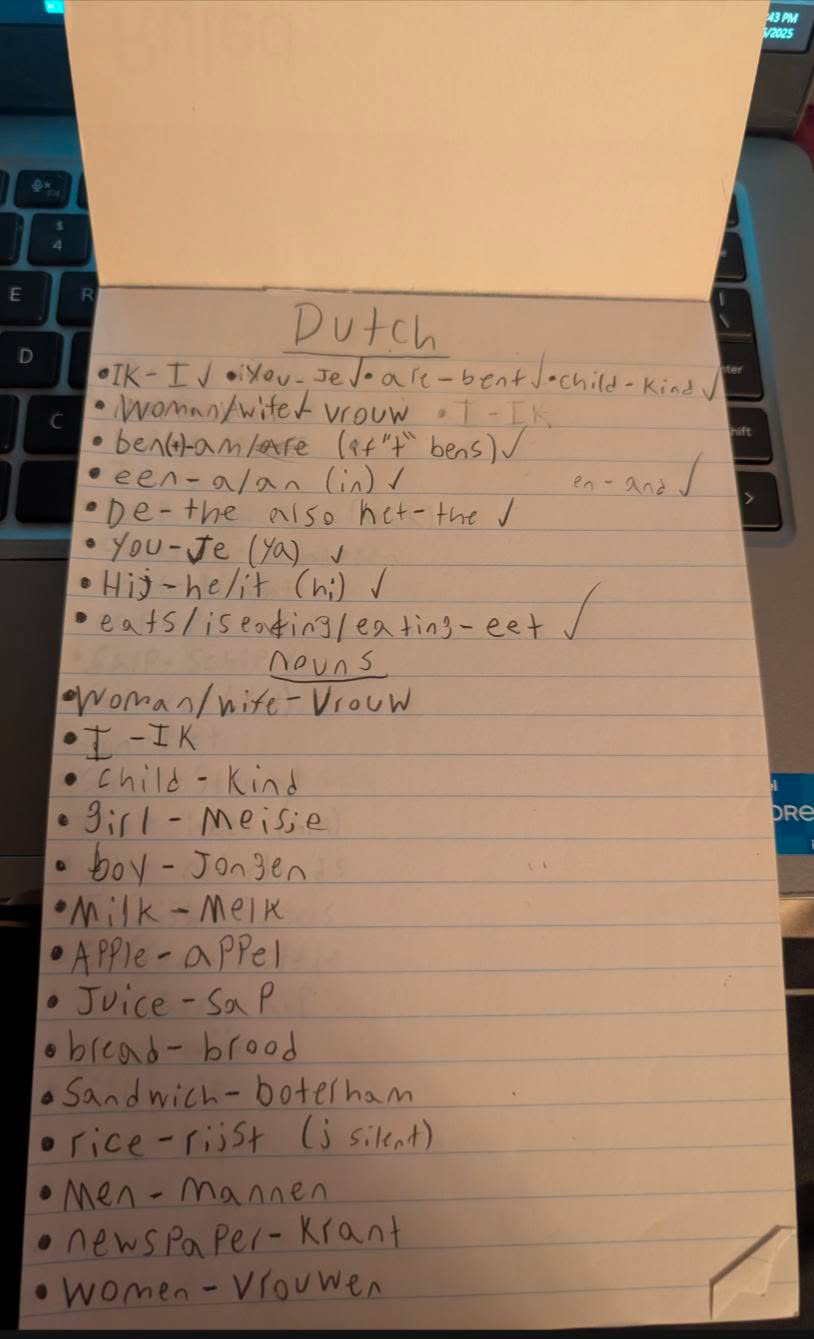 Ruled
:43 PM
/2025
$
4
E
R
D
C
nter
hift
Dutch
•IK-I✓ •You-Je✓•are-bent✓•child-Kind✓
•Woman/wife- vrouw •I-IK
•ben(t)-am/are (if "t" bens)✓
•een-a/an (in)✓
en-and✓
•De-the also het-the✓
•You-Je (ya) ✓
•Hij-he/it (hi) ✓
•eats/iseating/eating-eet ✓
nouns
•Woman/wife-Vrouw
•I-IK
•Child-Kind
•girl-Meisje
•boy-Jongen
•Milk-Melk
•Apple-appel
•Juice-Sap
•bread-brood
•Sandwich-boterham
•rice-rijst (j silent)
•Men-Mannen
•newspaper-Krant
•Women-Vrouwen
ORE